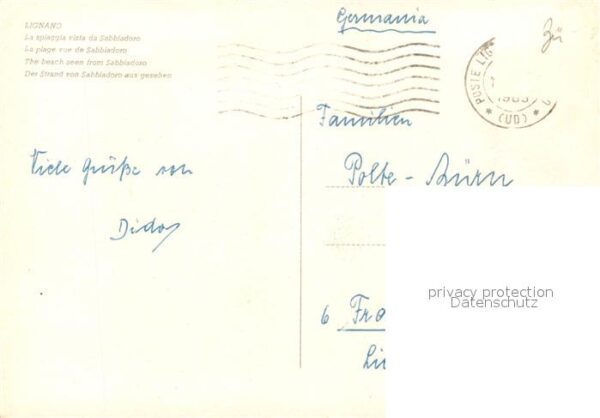 LIGNANO
La spiaggia vista da Sabbiadoro
La plage vue de Sabbiadoro
The beach seen from Sabbiadoro
Der Strand von Sabbiadoro aus gesehen
Germania
POSTE LIG
(UD)
Familien
Polte -
Viele Grüße von
6 Fra
privacy protection
Datenschutz